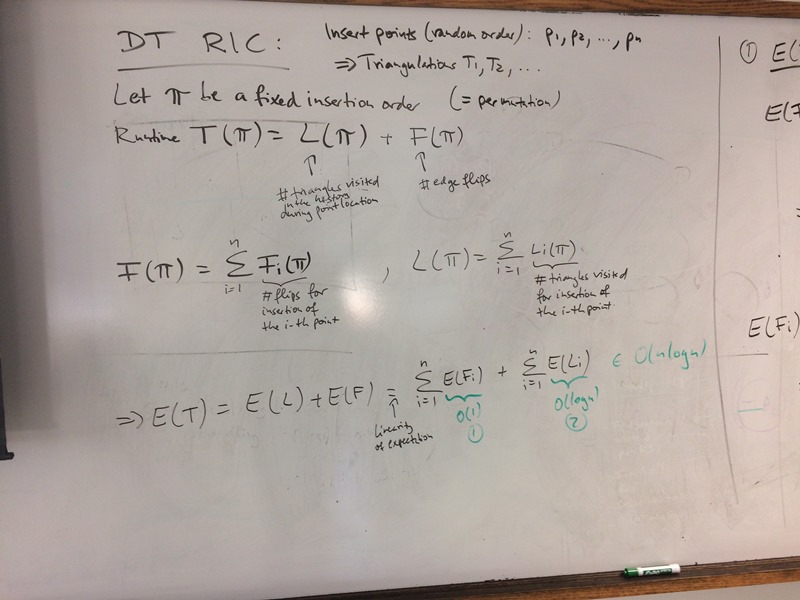 DT RIC: Insert points (random order): p1, p2, ..., pn
⇒ Triangulations T1, T2, ...
Let π be a fixed insertion order (= permutation)
Runtime T(π) = L(π) + F(π)
↑ ↑
# triangles visited in the history during point location
# edge flips
F(π) = Σ_{i=1}^{n} Fi(π) , L(π) = Σ_{i=1}^{n} Li(π)
# flips for insertion of the i-th point
# triangles visited for insertion of the i-th point
⇒ E(T) = E(L) + E(F) = Σ_{i=1}^{n} E(Fi) + Σ_{i=1}^{n} E(Li) ∈ O(n log n)
↑ linearity of expectation
O(1) O(log n)
① ②
① E(
E(F
E(Fi)